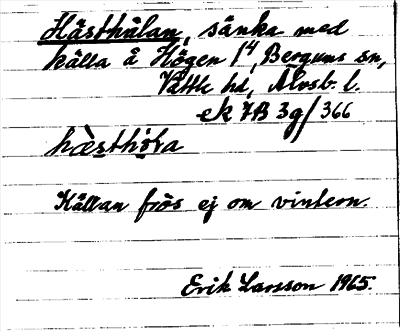 Hästhålan, sänka med
källa å Högen 1⁴, Bergums sn,
Vättle hd, Älvsb. l.
ek 7B 3g/366
Källan frös ej om vintern.
Erik Larsson 1965.